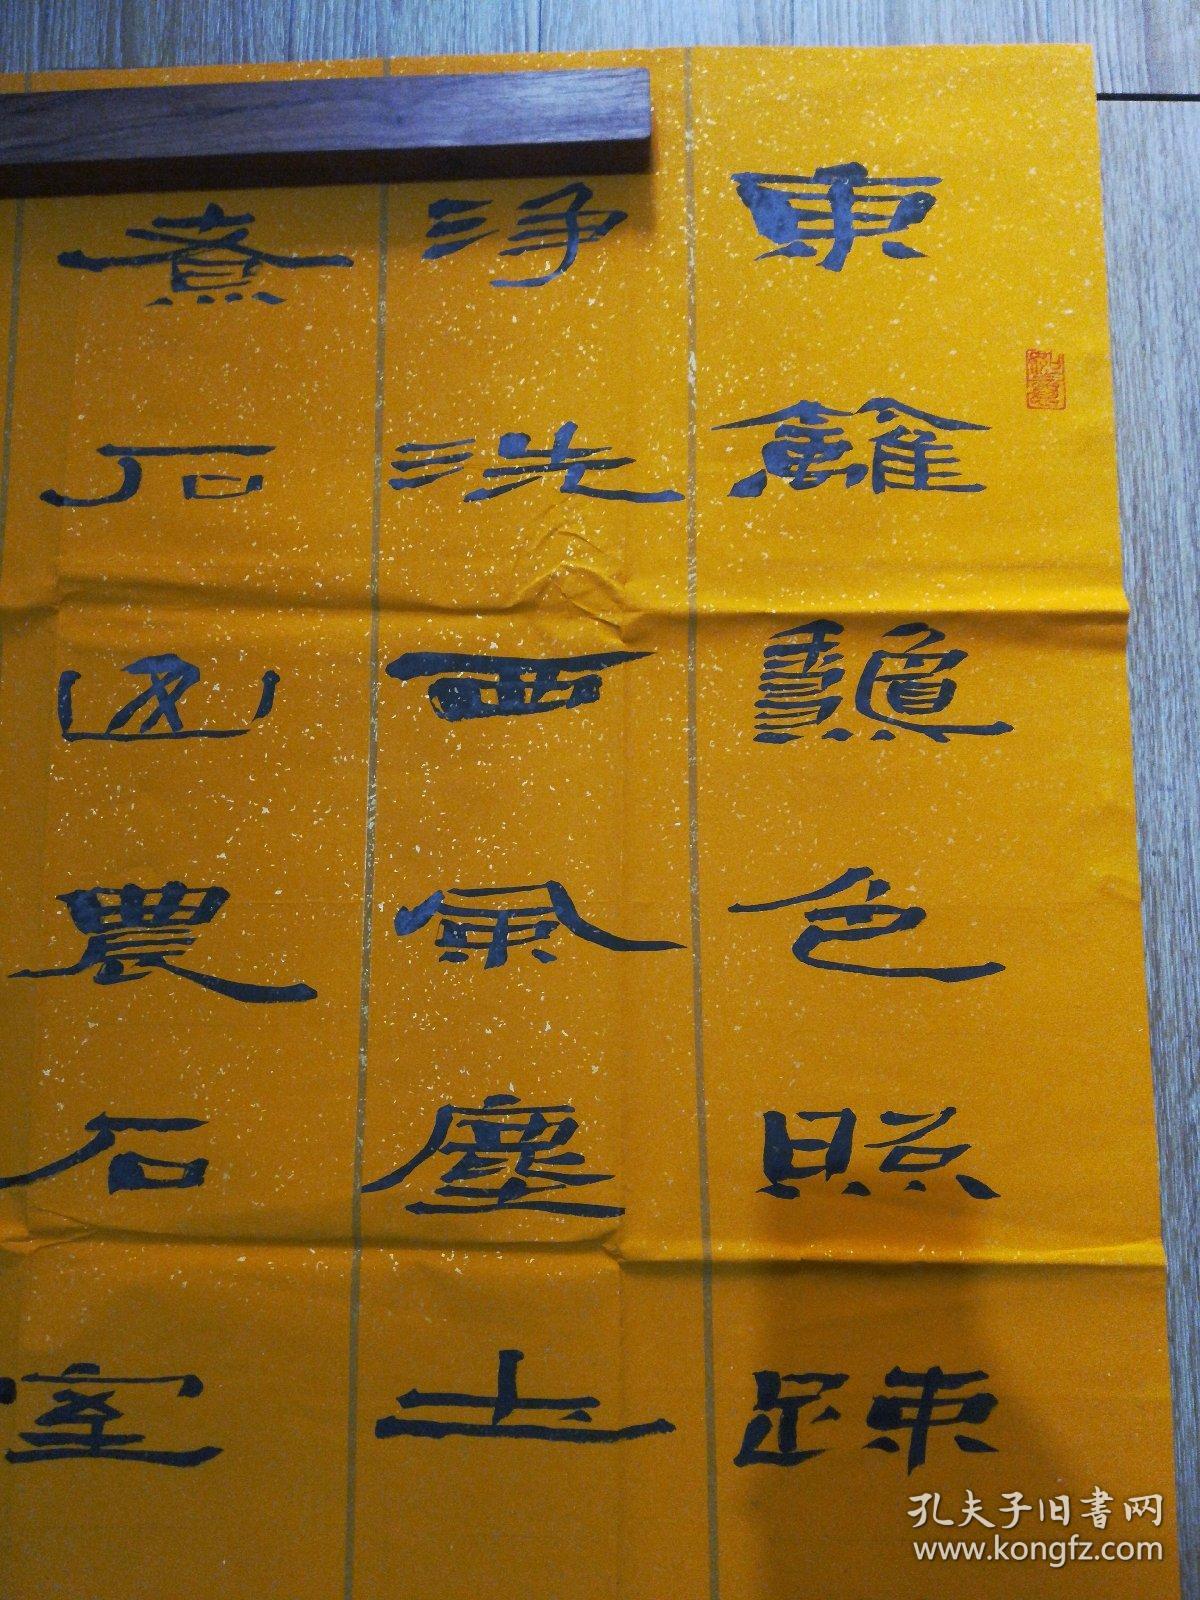 東籬龝色照疎
淨洗西風塵土
煮石山農石室
孔夫子旧書网
www.kongfz.com